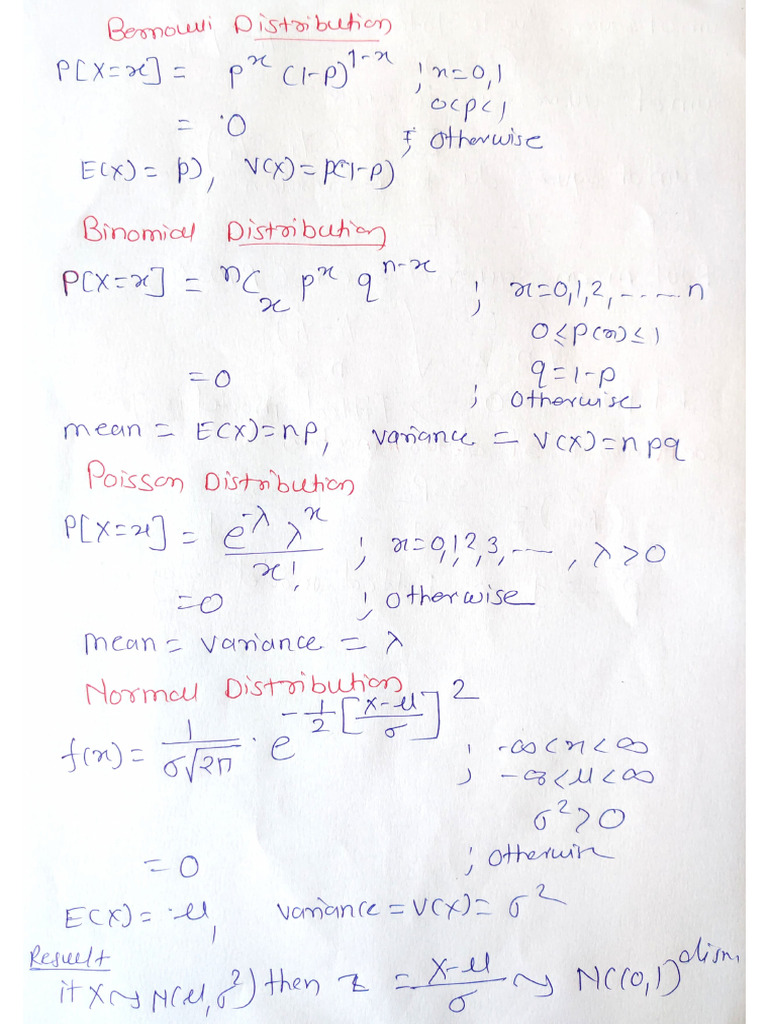 Bernoulli Distribution
P[X=x] = p^x (1-p)^1-x ; x=0,1
0<p<1
= 0 ; otherwise
E(X) = p), V(X) = p(1-p)
Binomial Distribution
P[X=x] = nCx p^x q^n-x ; x=0,1,2,.....n
0≤p(x)≤1
q=1-p
=0 ; Otherwise
mean = E(X)=np, variance = V(X)=npq
Poisson Distribution
P[X=x] = e^-λ λ^x / x! ; x=0,1,2,3,...., λ>0
=0 ; otherwise
mean = variance = λ
Normal Distribution
f(x) = 1/σ√2π · e^-1/2[X-μ/σ]^2 ; -∞<x<∞
; -∞<μ<∞
σ²>0
=0 ; otherwise
E(X) = μ, variance = V(X) = σ²
Result
if X~N(μ,σ²) then z = X-μ/σ ~ N((0,1) dism.